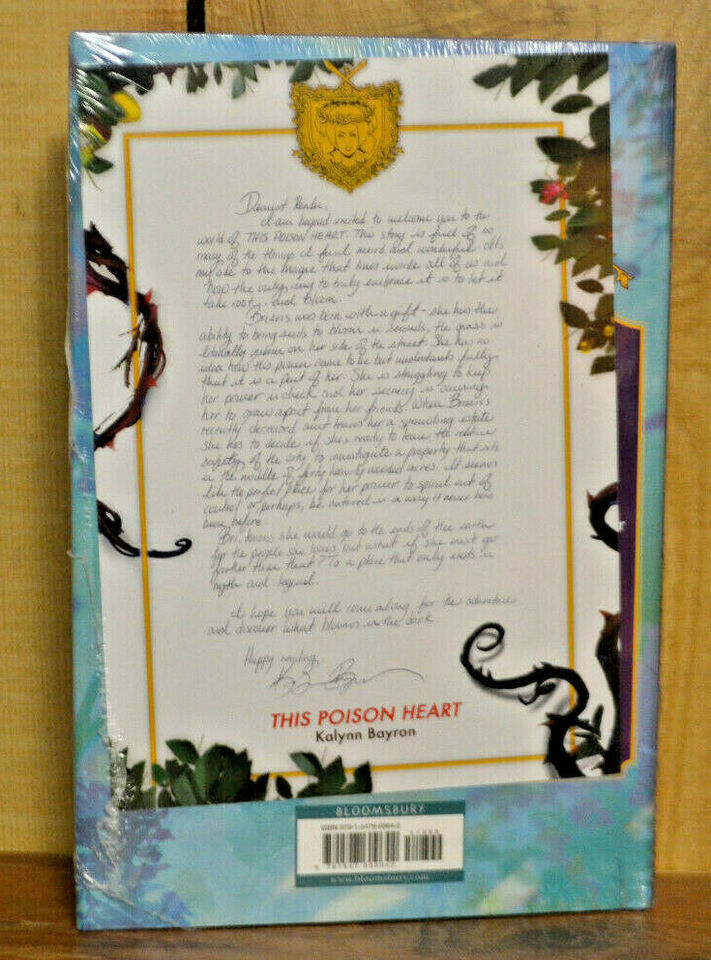 Dearest Reader,
I am beyond excited to welcome you to the
world of THIS POISON HEART. This story is full of so
many of the things I find weird and wonderful. It's
my ode to the magic that lives inside all of us and
how the only way to truly embrace it is to let it
take root, and bloom.
Briseis was born with a gift - she has the
ability to bring seeds to bloom in seconds, the grass is
literally greener on her side of the street. She has no
idea how this power came to be but understands fully
that it is a part of her. She is struggling to keep
her power in check and her secrecy is causing
her to grow apart from her friends. When Briseis's
recently deceased aunt leaves her a sprawling estate
she has to decide if she's ready to leave the relative
safety of the city to investigate a property that sits
in the middle of forty heavily wooded acres. It seems
like the perfect place for her power to spiral out of
control or perhaps, be nurtured in a way it never has
been before.
Briseis she would go to the ends of the earth
for the people she loves but what if she must go
farther than that? To a place that only exists in
myth and legend.
I hope you will come along for the adventure
and discover what blooms in the dark.
Happy reading,
THIS POISON HEART
Kalynn Bayron
BLOOMSBURY
www.bloomsbury.com